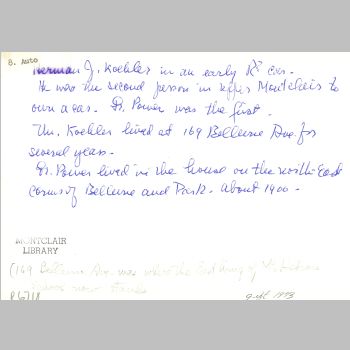 B. Auto
Herman J. Koehler in an early car.
He was the second person in upper Montclair to
own a car. Dr. Power was the first.
Mr. Koehler lived at 169 Bellevue Ave for
several years.
Dr. Power lived in the house on the north-East
corner of Bellevue and Park. About 1900.
MONTCLAIR
LIBRARY
(169 Bellevue Ave. was where the East wing of
now stands
gift 1973